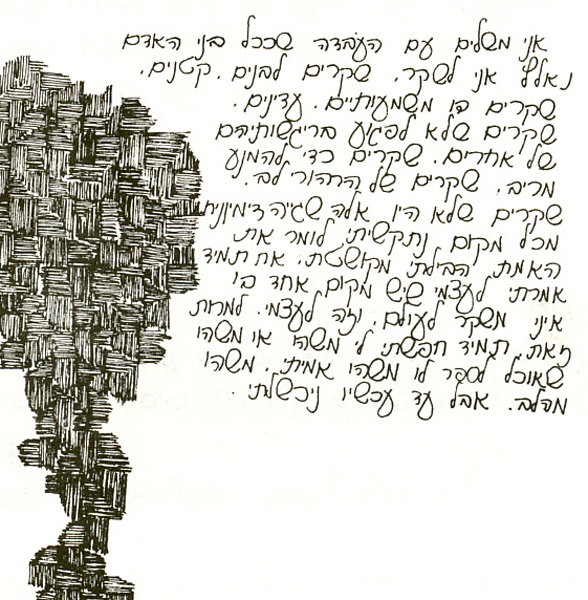 אני משלים עם העובדה שככל בני האדם
נאלץ אני לשקר, שקרים לבנים. קטנים.
שקרים בו משמעותיים. עדינים.
שקרים שלא לפגוע ברגשותיהם
של אחרים. שקרים כדי להמנע
מריב. שקרים של הרהורי לב.
שקרים שלא היו אלה שגיה דימיונית
מכל מקום נתקשיתי לומר את
האמת הבילתי מקושטת. את תמיד
אמרתי לעצמי שיש מקום אחד בו
איני משקר לעולם, וזה לעצמי. למרות
זאת, תמיד חפשתי לי משהו או משהו
שאוכל לספר לו משהו אמיתי. משהו
מהלב. אבל עד עכשיו ניכשלתי.